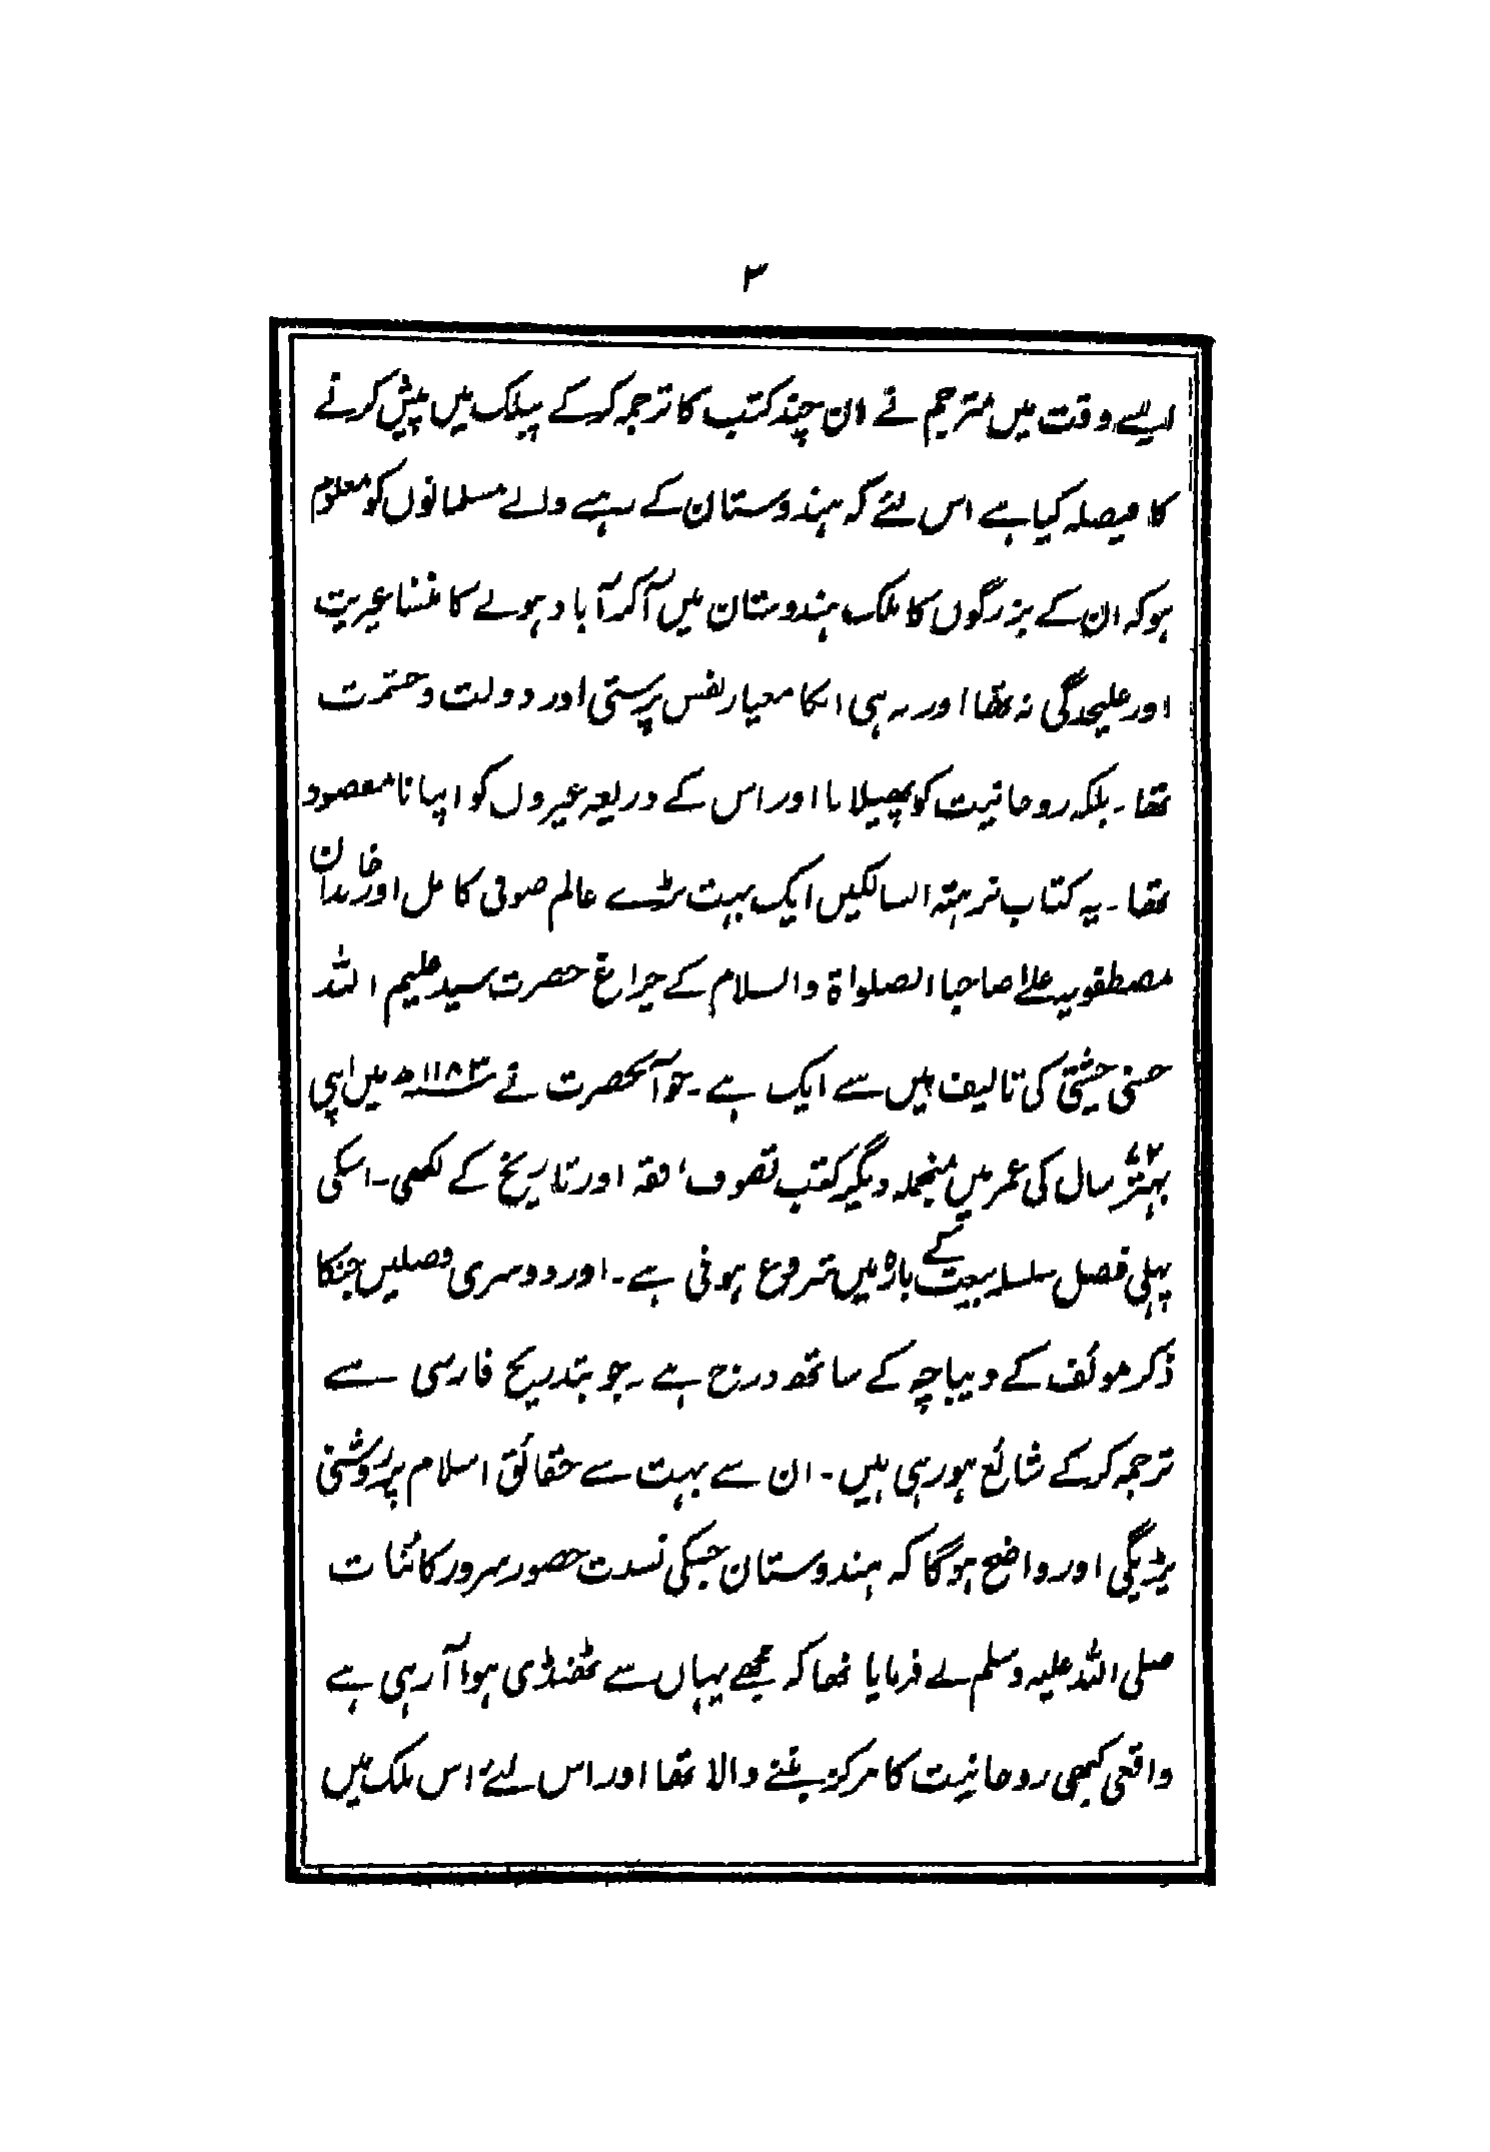 ۳
ایسے وقت میں مترجم نے ان چند کتب کا ترجمہ کرکے پبلک میں پیش کرنے
کا فیصلہ کیا ہے اس لئے کہ ہندوستان کے رہنے والے مسلمانوں کو معلوم
ہو کہ ان کے بزرگوں کا ملک ہندوستان میں آکر آباد ہونے کا منشا غیریت
اور علیحدگی نہ تھا اور نہ ہی انکا معیار نفس پرستی اور دولت و حشمت
تھا۔ بلکہ روحانیت کو پھیلانا اور اس کے ذریعہ غیروں کو اپنانا مقصود
تھا۔ یہ کتاب نزہتہ السالکین ایک بہت بڑے عالم صوفی کامل اور خاندان
مصطفویہ علیٰ صاحبا الصلواۃ والسلام کے چراغ حضرت سید علیم اللہ
حسنی چشتی کی تالیف میں سے ایک ہے۔ جو آنحضرت نے ۱۱۸۳ھ میں اپنی
بہتّر ۷۲ سال کی عمر میں منجملہ دیگر کتب تصوف، فقہ اور تاریخ کے لکھی۔ اسکی
پہلی فصل سلسلہ بیعت کے بارہ میں شروع ہوتی ہے۔ اور دوسری فصلیں جنکا
ذکر مولف کے دیباچہ کے ساتھ درج ہے۔ جو بتدریج فارسی سے
ترجمہ کرکے شائع ہو رہی ہیں۔ ان سے بہت سے حقائق اسلام پر روشنی
پڑیگی اور واضح ہوگا کہ ہندوستان جسکی نسبت حضور سرور کائنات
صلی اللہ علیہ وسلم نے فرمایا تھا کہ مجھے یہاں سے ٹھنڈی ہوا آ رہی ہے
واقعی کبھی روحانیت کا مرکز بننے والا تھا اور اس لئے اس ملک میں